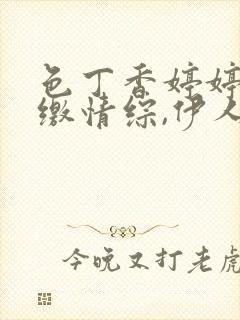 色丁香婷婷
缴情综,伊人
今晚又打老虎